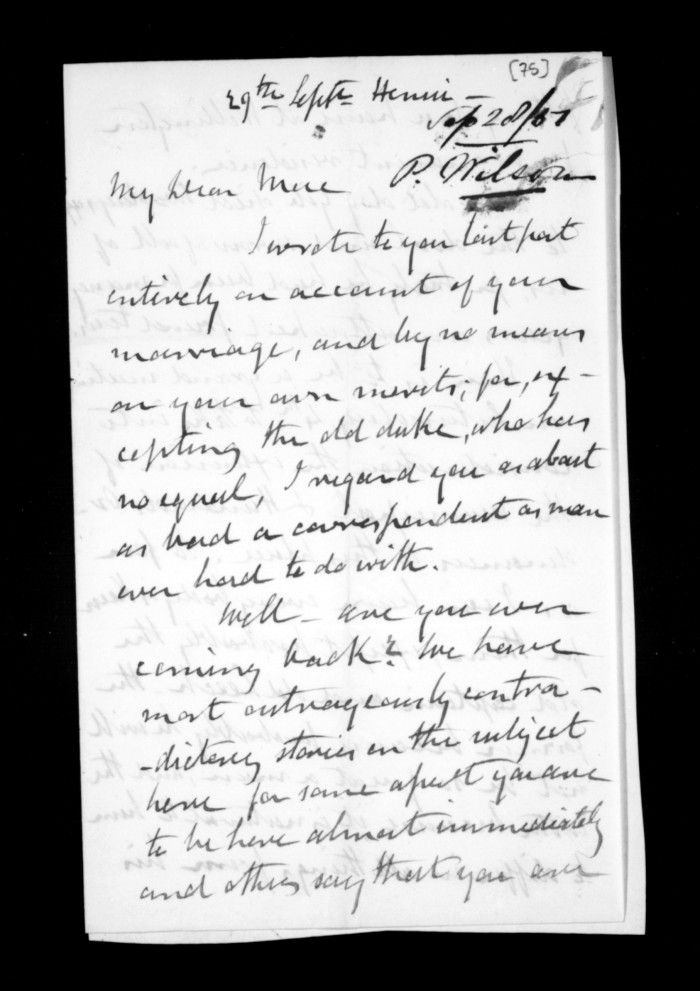 [75]
29th Septr
Sep 28/51
P. Wilson
My Dear
I wrote to you last post
entirely on account of your
marriage, and by no means
on your own merits; for, ex-
cepting the old duke, who has
no equal, I regard you as about
as bad a correspondent as man
ever had to do with.
Well - are you ever
coming back? We have
most outrageously contra-
-dictory stories on the subject
here for some a you are
to be here almost immediately
and others say that you are